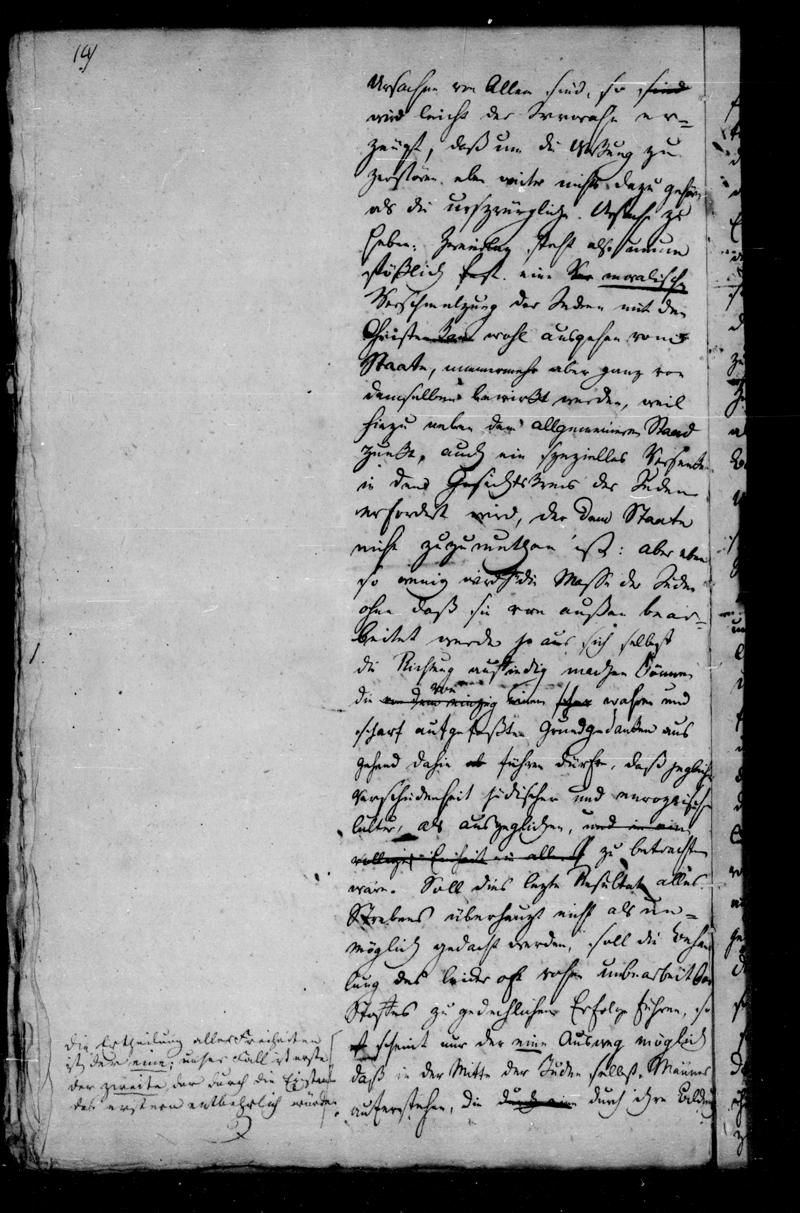 19)
Ursachen von Allem sind, so sind
wird leicht der Irrwahn er-
zeugt, daß um die Wirkung zu
zerstören eben weiter nichts dazu gehöre
als die ursprüngliche Ursache zu
heben. steht also unum
stößlich fest. eine Ver moralische
Verschmelzung der Juden mit den
Christen kann wohl ausgehen vom
Staate, nimmermehr aber ganz von
demselben bewirkt werden, weil
hiezu neben dem allgemeinen Stand
punkt, auch ein spezielles Versenken
in den Gesichtskreis der Juden
erfordert wird, der dem Staate
nicht zuzumuthen ist: aber eben
so wenig wird die Masse der Juden
ohne daß sie von außen bear-
beitet werde so aus sich selbst
die Richtung ausfindig machen können
die von einem wahren und
scharf aufgefaßten Grundgedanken aus
gehend dahin führen dürfte, daß jegliche
Verschiedenheit jüdischer und europäischer
Cultur, als ausgeglichen, und in eine
Einheit zu betrachten
wäre. Soll dies letzte Resultat alles
Strebens überhaupt nicht als un-
möglich gedacht werden, soll die Behand
lung des leider oft rohen unbearbeiteten
Stoffes zu gedeihlichem Erfolge führen, so
scheint nur der eine Ausweg möglich
daß in der Mitte der Juden selbst, Männer
auferstehen, die durch eine durch ihre Bildung
Die Ertheilung aller Freiheiten
ist der eine; unser Fall ist erste
der zweite, der durch die Existenz
des erstern entbehrlich würde.